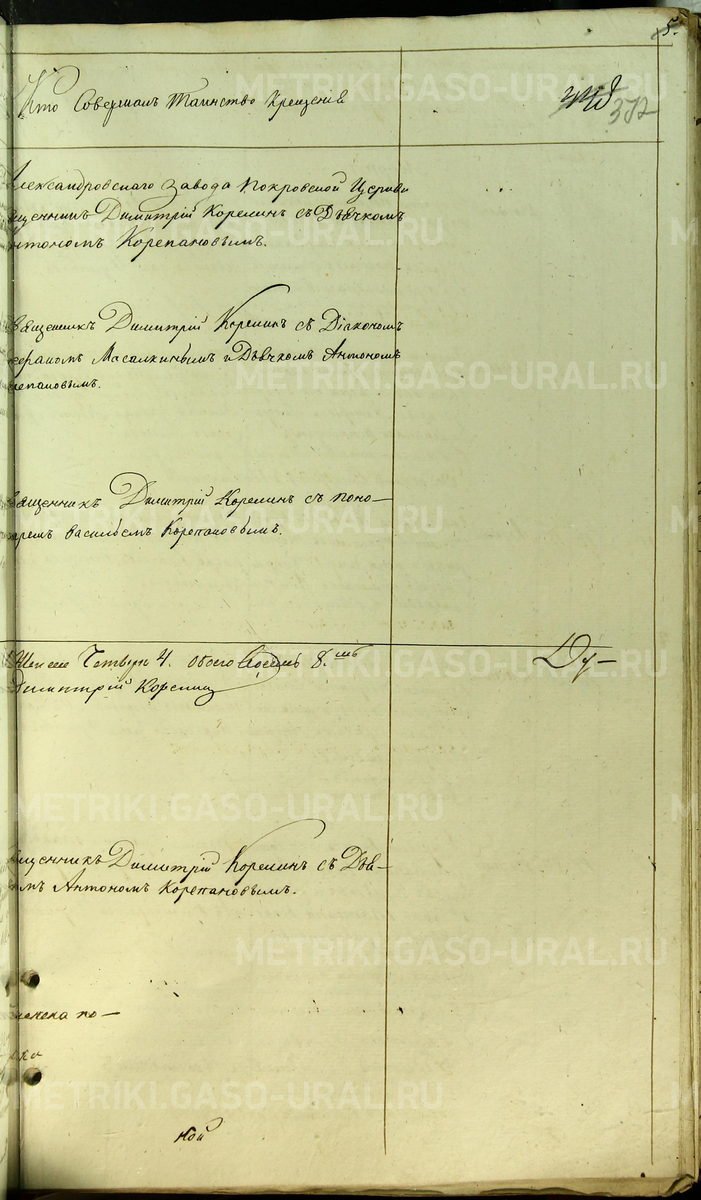 5.
Кто Совершалъ Таинство Крещенія
372
Александровскаго Завода Покровской Церкви
ященникъ Димитрій Корелинъ съ Дьячкомъ
нтономъ Корепановымъ.
вященникъ Димитрій Корелинъ съ Діакономъ
Масалкинымъ и Дьячкомъ Антономъ
репановымъ.
вященникъ Димитрій Корелинъ съ поно-
аремъ Васильемъ Корепановымъ.
Женска Четверы 4. обоего восемь 8.мь
Димитрій Корелинъ
ященникъ Димитрій Корелинъ съ Дья-
омъ Антономъ Корепановымъ.
по-
ной
METRIKI.GASO-URAL.RU